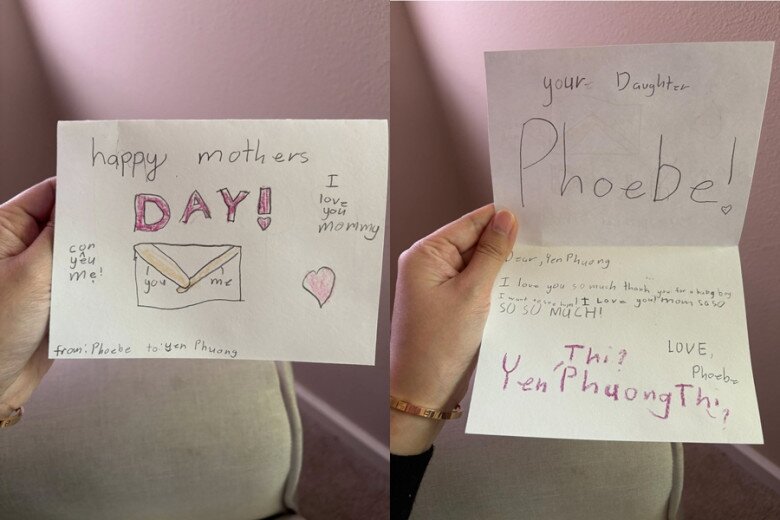 happy mothers
DAY!
I
love
you
mommy
con
yêu
mẹ!
you
me
from: Phoebe to: Yen Phuong
your Daughter
Phoebe!
Dear, Yen Phuong
I love you so much thank you for a baby boy
I want to see him! I Love you! mom so so
SO SO MUCH!
LOVE,
Phoebe
Thi?
Yen Phuong Thi?